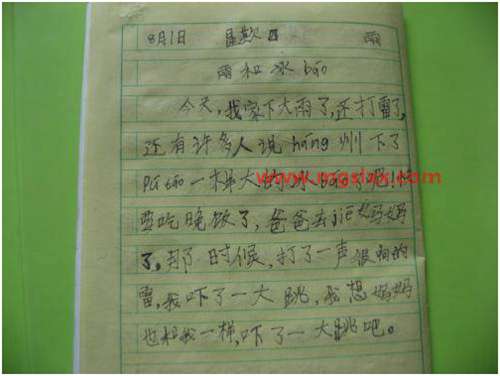 8月1日 星期日 雨
雨和冰báo
今天,我家下大雨了,还打雷了,
还有许多人说háng州下了
pú táo一样大的冰
www.mgslxx.com
要吃晚饭了,爸爸去jiē妈妈
了,那时候,打了一声很响的
雷,我吓了一大跳,我想妈妈
也和我一样,吓了一大跳吧。